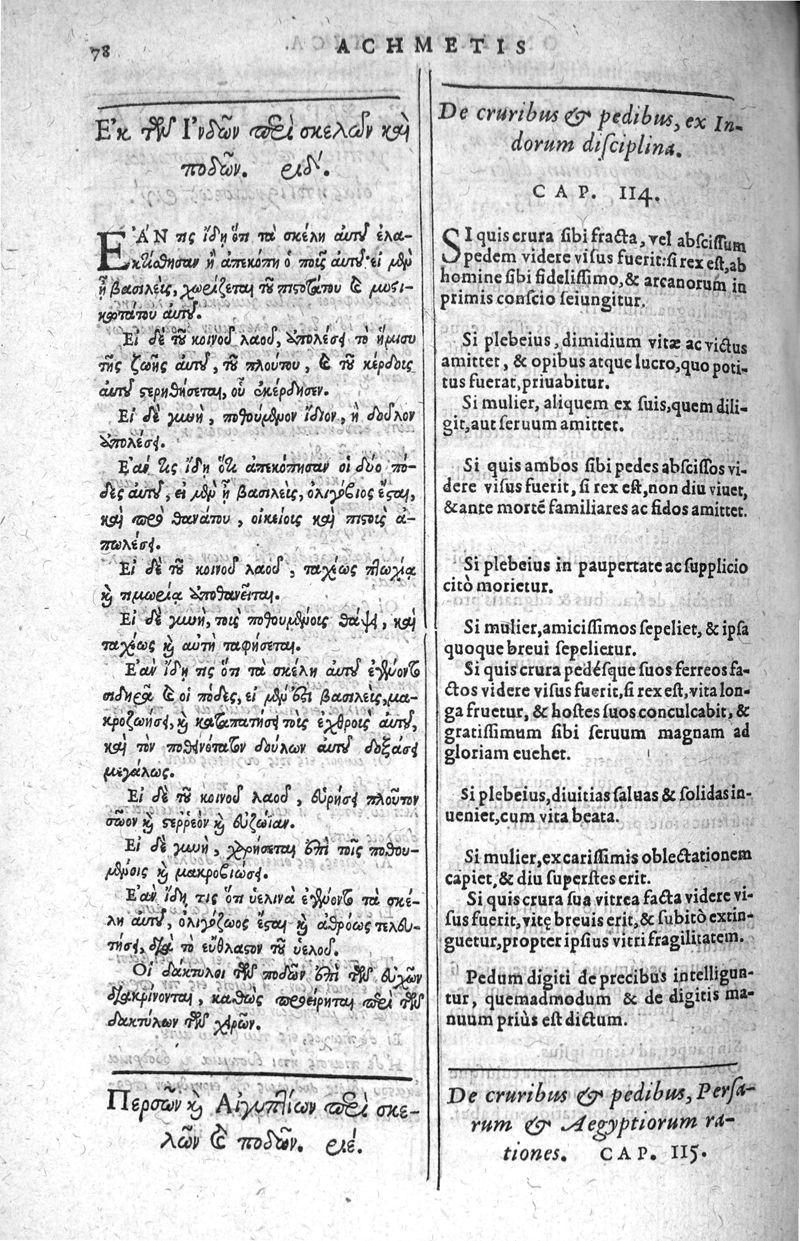 78
ACHMETIS
Ἐκ τῶν Ἰνδῶν περὶ σκελῶν καὶ
ποδῶν. ριδʹ.
ΕἈΝ τις ἴδῃ ὅτι τὰ σκέλη αὐτοῦ ἐλα-
κτίσθησαν ἢ ἀπεκόπη ὁ ποῦς αὐτοῦ· εἰ μὲν
ᾖ βασιλεὺς, χωρίζεται τοῦ πιστοτάτου καὶ μυστι-
κωτάτου αὐτοῦ.
Εἰ δὲ τοῦ κοινοῦ λαοῦ, ἀπολέσει τὸ ἥμισυ
τῆς ζωῆς αὐτοῦ, τοῦ πλούτου, καὶ τοῦ κέρδους
αὐτοῦ στερηθήσεται, οὗ ἐκέρδησεν.
Εἰ δὲ γυνὴ, ποθούμενον ἴδιον, ἢ δοῦλον
ἀπολέσει.
Ἐάν τις ἴδῃ ὅτι ἀπεκόπησαν οἱ δύο πό-
δες αὐτοῦ, εἰ μὲν ᾖ βασιλεὺς, ὀλιγόβιος ἔσται,
καὶ πρὸ θανάτου, οἰκείους καὶ πιστοὺς ἀ-
πωλέσει.
Εἰ δὲ τοῦ κοινοῦ λαοῦ, ταχέως πτωχίᾳ
καὶ τιμωρίᾳ ἀποθανεῖται.
Εἰ δὲ γυνὴ, τοὺς ποθουμένους θάψει, καὶ
ταχέως καὶ αὐτὴ ταφήσεται.
Ἐὰν ἴδῃ τις ὅτι τὰ σκέλη αὐτοῦ ἐγένοντο
σιδηρᾶ καὶ οἱ πόδες, εἰ μὲν ἐστὶ βασιλεὺς, μα-
κροζωήσει, καὶ καταπατήσει τοὺς ἐχθροὺς αὐτοῦ,
καὶ τὸν ποθεινότατον δούλων αὐτοῦ δοξάσει
μεγάλως.
Εἰ δὲ τοῦ κοινοῦ λαοῦ, εὑρήσει πλοῦτον
σῶον καὶ στερρεὸν καὶ εὐζωΐαν.
Εἰ δὲ γυνὴ, χρήσεται ἐπὶ τοῖς ποθου-
μένοις καὶ μακροβιώσει.
Ἐὰν ἴδῃ τις ὅτι ὑελινὰ ἐγένοντο τὰ σκέ-
λη αὐτοῦ, ὀλιγόζωος ἔσται καὶ ἀθρόως τελευ-
τήσει, διὰ τὸ εὔθλαστον τοῦ ὑελοῦ.
Οἱ δάκτυλοι τῶν ποδῶν ἐπὶ τῶν εὐχῶν
διακρίνονται, καθὼς προείρηται περὶ τῶν
δακτύλων τῶν χειρῶν.
Περσῶν καὶ Αἰγυπτίων περὶ σκε-
λῶν καὶ ποδῶν. ριεʹ.
De cruribus & pedibus, ex In-
dorum diſciplina.
CAP. 114.
SI quis crura ſibi fracta, vel abſciſſum
pedem videre viſus fuerit: ſi rex eſt, ab
homine ſibi fideliſſimo, & arcanorum in
primis conſcio ſeiungitur.
Si plebeius, dimidium vitæ ac victus
amittet, & opibus atque lucro, quo poti-
tus fuerat, priuabitur.
Si mulier, aliquem ex ſuis, quem dili-
git, aut ſeruum amittet.
Si quis ambos ſibi pedes abſciſſos vi-
dere viſus fuerit, ſi rex eſt, non diu viuet,
& ante mortē familiares ac fidos amittet.
Si plebeius in paupertate ac ſupplicio
citò morietur.
Si mulier, amiciſſimos ſepeliet, & ipſa
quoque breui ſepelietur.
Si quis crura pedéſque ſuos ferreos fa-
ctos videre viſus fuerit, ſi rex eſt, vita lon-
ga fruetur, & hoſtes ſuos conculcabit, &
gratiſſimum ſibi ſeruum magnam ad
gloriam euehet.
Si plebeius, diuitias ſaluas & ſolidas in-
ueniet, cum vita beata.
Si mulier, ex cariſſimis oblectationem
capiet, & diu ſuperſtes erit.
Si quis crura ſua vitrea facta videre vi-
ſus fuerit, vitę breuis erit, & ſubitò extin-
guetur, propter ipſius vitri fragilitatem.
Pedum digiti de precibus intelligun-
tur, quemadmodum & de digitis ma-
nuum priùs eſt dictum.
De cruribus & pedibus, Perſa-
rum & Aegyptiorum ra-
tiones. CAP. 115.